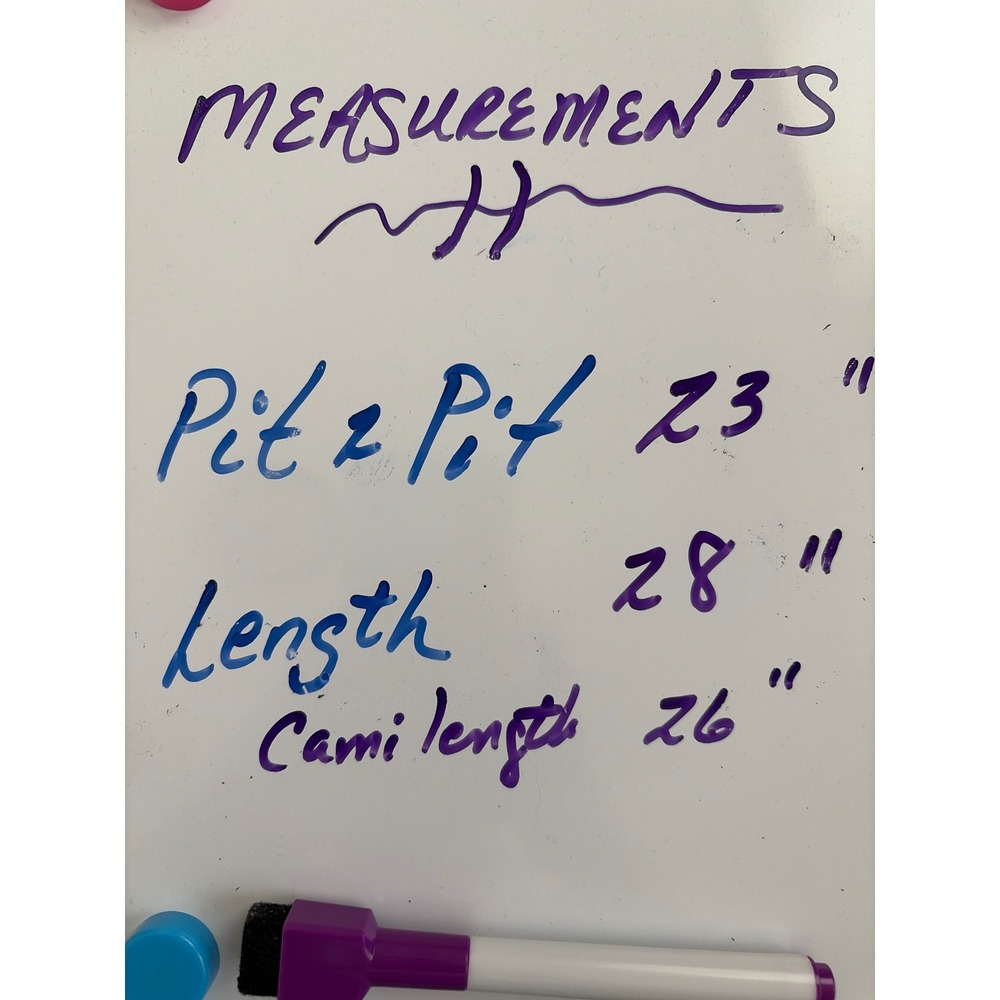 MEASUREMENTS
Pit 2 Pit 23 "
Length 28 "
Cami length 26 "